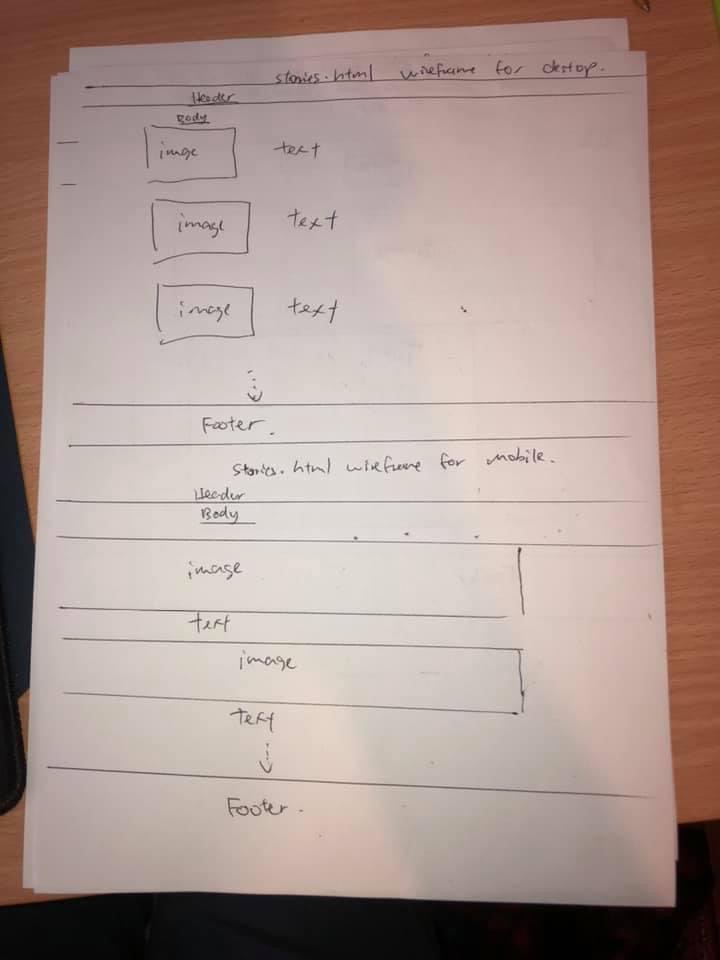 stories.html wireframe for destop.
Header
Body
image text
image text
image text
Footer.
stories.html wireframe for mobile.
Header
Body
image
text
image
text
Footer.